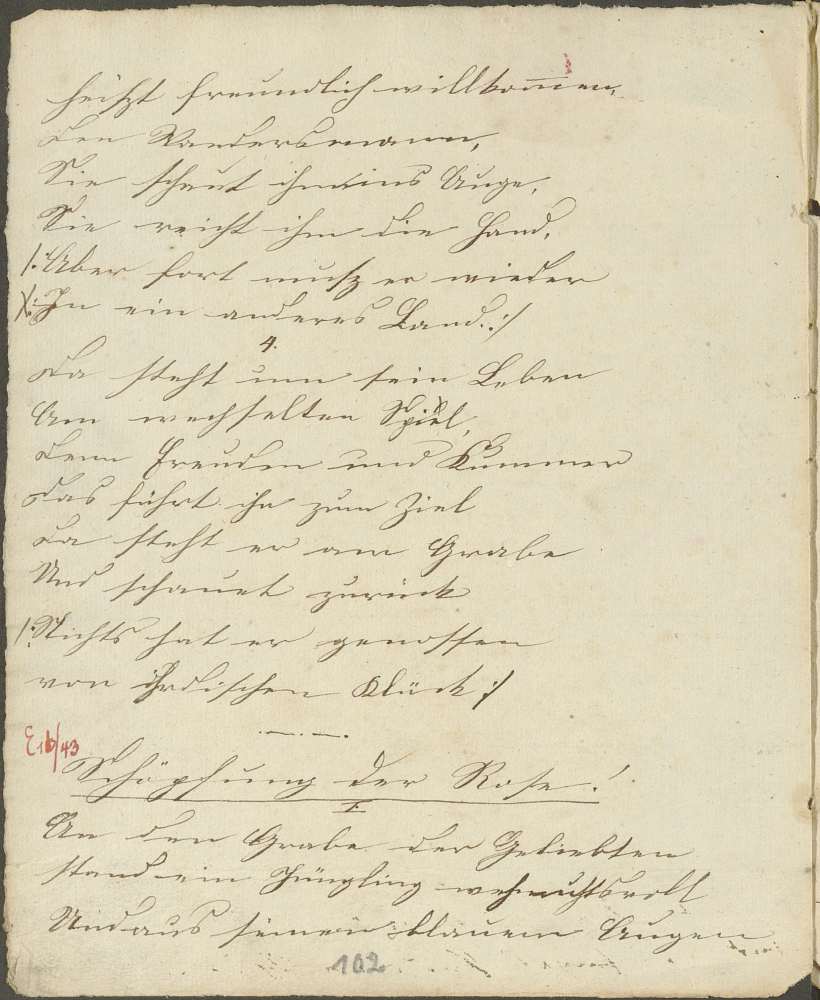 heißt freundlich willkommen,
den Wandersmann,
Sie schaut ihm ins Auge,
Sie reicht ihm die Hand,
/: Aber fort muß er wieder
/: In ein anderes Land. :/
4.
Da steht um sein Leben
Am wechselten Spiel,
denn Freuden und Kummer
das führt ihn zum Ziel
da steht er am Grabe
Und schauet zurück
/: Nichts hat er genossen
von ihrdischen Klück :/
E 16/43
Schöpfung der Rose!
I.
An den Grabe der Geliebten
stand ein Jüngling wehmuthsvoll
Und aus seinen blauen Augen
102